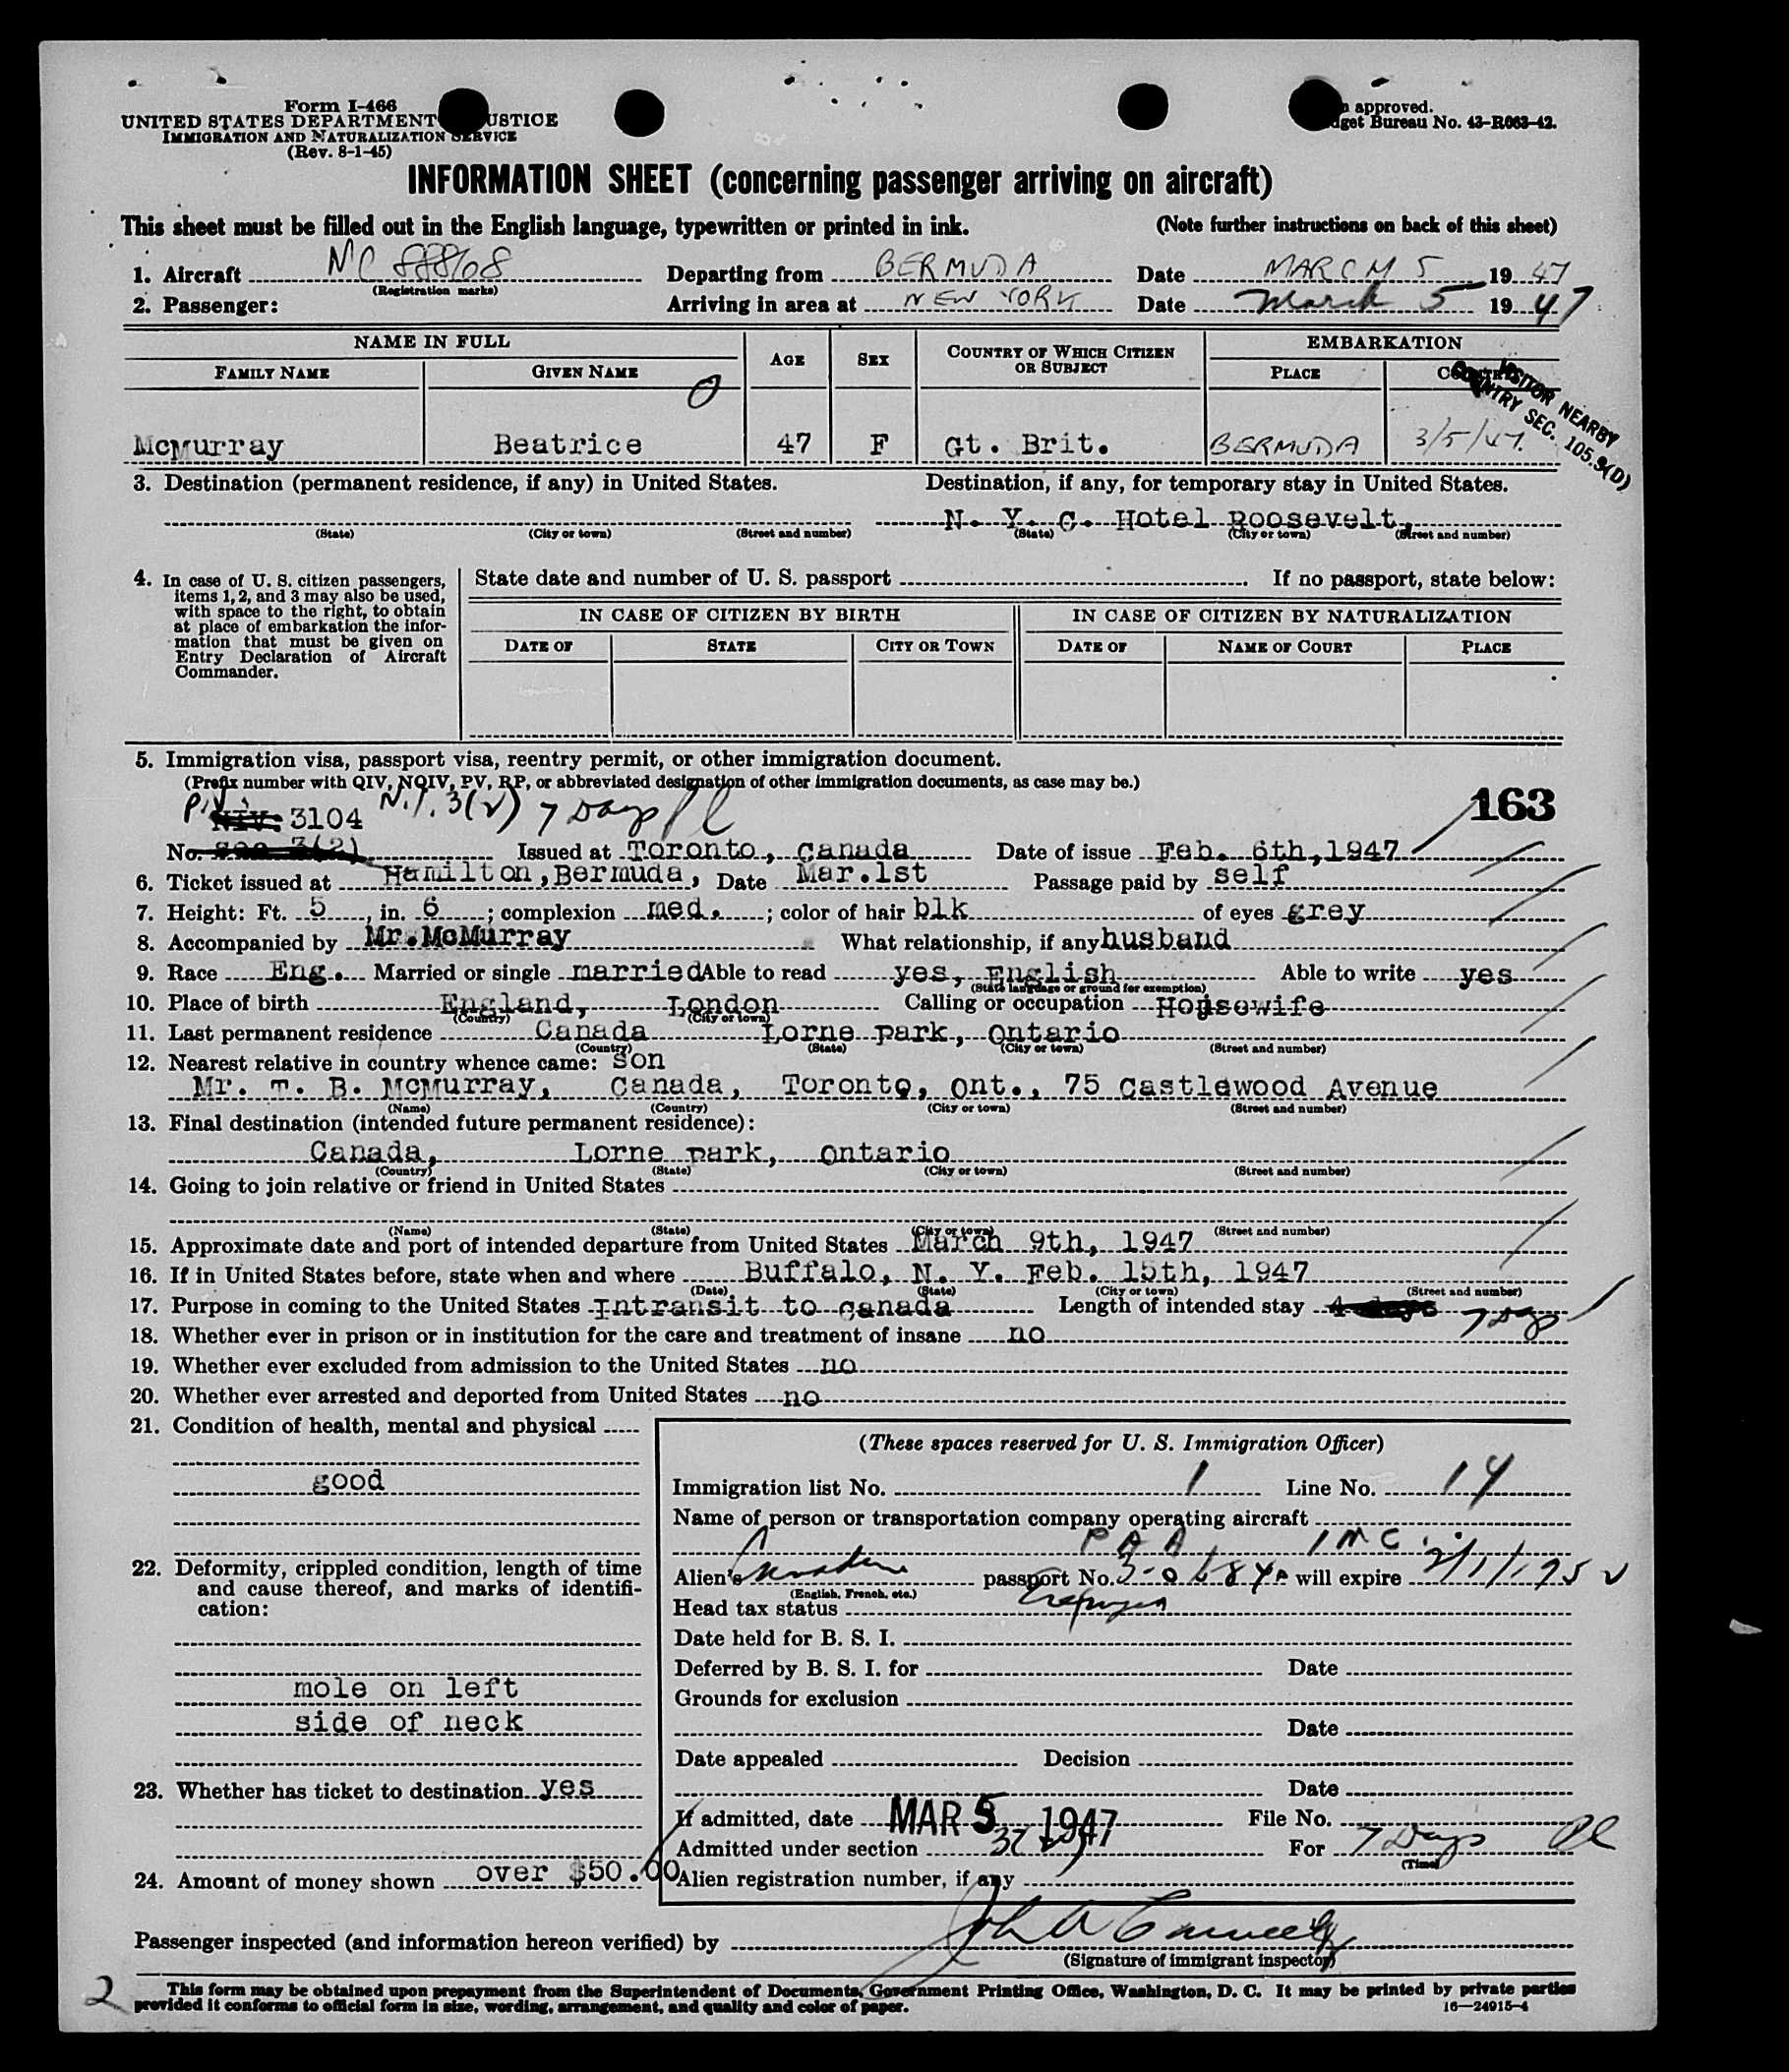 Form I-466
UNITED STATES DEPARTMENT USTICE
IMMIGRATION AND NATURALIZATION SERVICE
(Rev. 8-1-45)
approved.
get Bureau No. 43-R063-42.
INFORMATION SHEET (concerning passenger arriving on aircraft)
This sheet must be filled out in the English language, typewritten or printed in ink. (Note further instructions on back of this sheet)
1. Aircraft NC 88868 Departing from BERMUDA Date MARCH 5 1947
(Registration marks)
2. Passenger: Arriving in area at NEW YORK Date March 5 1947
NAME IN FULL AGE SEX COUNTRY OF WHICH CITIZEN OR SUBJECT EMBARKATION
FAMILY NAME GIVEN NAME PLACE
VISITOR NEARBY
COUNTRY SEC. 105.3(D)
McMurray Beatrice 47 F Gt. Brit. BERMUDA 3/5/47
3. Destination (permanent residence, if any) in United States. Destination, if any, for temporary stay in United States.
N. Y. C. Hotel Roosevelt,
(State) (City or town) (Street and number) (State) (City or town) (Street and number)
4. In case of U. S. citizen passengers, items 1, 2, and 3 may also be used, with space to the right, to obtain at place of embarkation the information that must be given on Entry Declaration of Aircraft Commander.
State date and number of U. S. passport If no passport, state below:
IN CASE OF CITIZEN BY BIRTH IN CASE OF CITIZEN BY NATURALIZATION
DATE OF STATE CITY OR TOWN DATE OF NAME OF COURT PLACE
5. Immigration visa, passport visa, reentry permit, or other immigration document.
(Prefix number with QIV, NQIV, PV, RP, or abbreviated designation of other immigration documents, as case may be.)
P.V. NIV. 3104 N.I. 3(2) 7 Days 163
No. sec 3(2) Issued at Toronto, Canada Date of issue Feb. 6th, 1947
6. Ticket issued at Hamilton, Bermuda, Date Mar. 1st Passage paid by self
7. Height: Ft. 5, in. 6; complexion med.; color of hair blk of eyes grey
8. Accompanied by Mr. McMurray What relationship, if any husband
9. Race Eng. Married or single married Able to read yes, English Able to write yes
(State language or ground for exemption)
10. Place of birth England, London Calling or occupation Housewife
(Country) (City or town)
11. Last permanent residence Canada Lorne park, Ontario
(Country) (State) (City or town) (Street and number)
12. Nearest relative in country whence came: son
Mr. T. B. McMurray, Canada, Toronto, Ont., 75 Castlewood Avenue
(Name) (Country) (City or town) (Street and number)
13. Final destination (intended future permanent residence):
Canada, Lorne park, Ontario
(Country) (State) (City or town) (Street and number)
14. Going to join relative or friend in United States
(Name) (State) (City or town) (Street and number)
15. Approximate date and port of intended departure from United States March 9th, 1947
16. If in United States before, state when and where Buffalo, N. Y. Feb. 15th, 1947
(Date) (State) (City or town) (Street and number)
17. Purpose in coming to the United States Intransit to canada Length of intended stay 4 days 7 Days
18. Whether ever in prison or in institution for the care and treatment of insane no
19. Whether ever excluded from admission to the United States no
20. Whether ever arrested and deported from United States no
21. Condition of health, mental and physical
good
22. Deformity, crippled condition, length of time and cause thereof, and marks of identification:
mole on left
side of neck
23. Whether has ticket to destination yes
24. Amount of money shown over $50.00
(These spaces reserved for U. S. Immigration Officer)
Immigration list No. 1 Line No. 14
Name of person or transportation company operating aircraft
P A A INC.
Alien's Canadian passport No. will expire
(English, French, etc.)
Head tax status
Date held for B. S. I.
Deferred by B. S. I. for Date
Grounds for exclusion
Date
Date appealed Decision
Date
If admitted, date MAR 5 1947 File No.
Admitted under section 3(2) For 7 Days
(Time)
Alien registration number, if any
Passenger inspected (and information hereon verified) by
(Signature of immigrant inspector)
2
This form may be obtained upon prepayment from the Superintendent of Documents, Government Printing Office, Washington, D. C. It may be printed by private parties
provided it conforms to official form in size, wording, arrangement, and quality and color of paper. 16—24915-4